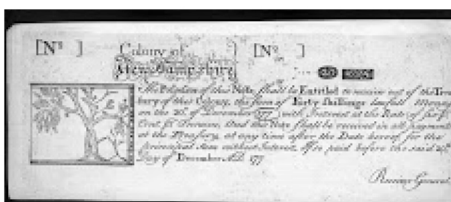 [No ] Colony of [No ]
New Hampshire
The Possessor of this Note shall be Entitled to receive out of the Trea
sury of this Colony, the sum of Forty Shillings lawfull Money
on the 20th of December 177 with Interest at the Rate of six p
Cent p Annum, And this Note shall be received in all payments
at the Treasury, at any time after the Date hereof for the
principal Sum without Interest, if so paid before the said 20th
Day of December A.D. 177
Receiver General